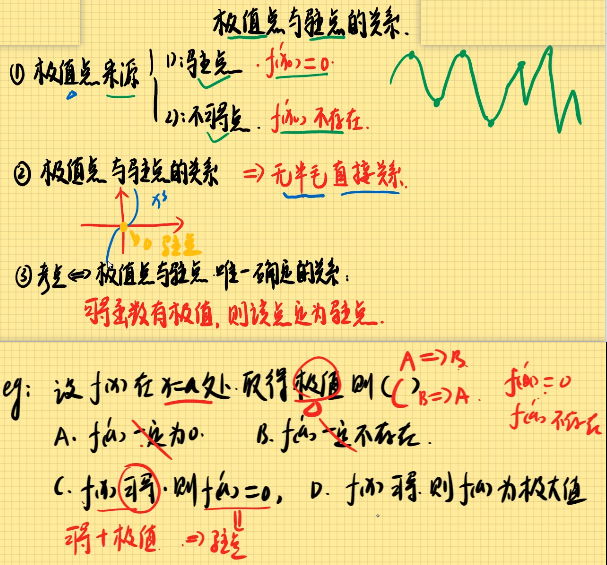 极值点与驻点的关系.
① 极值点来源
1): 驻点. f'(x₀)=0.
2): 不可导点. f'(x₀) 不存在.
② 极值点与驻点的关系 => 无半毛直接关系.
x³
驻点
③ 考点 <=> 极值点与驻点唯一确定的关系:
可导函数有极值, 则该点定为驻点.
eg: 设 f(x) 在 x=a 处取得极值则 ( )
A => B
B => A.
f'(a)=0
f'(a) 不存在
A. f'(a) 一定为0. B. f'(a) 一定不存在.
C. f(x) 可导. 则 f'(a)=0, D. f(x) 可导. 则 f(a) 为极大值
可导+极值 => 驻点